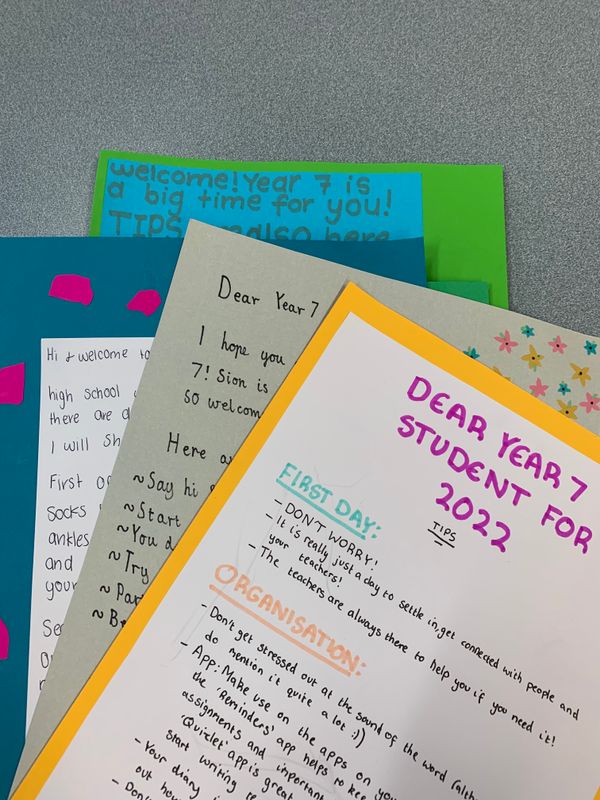 Welcome! Year 7 is
a big time for you!
TIPS also here
Hi + welcome to
high school
there are
I will
First
Socks
ankles
and
your
Dear Year 7
I hope you
7! Sion is
so welcom
Here
~Say hi
~Start
~You
~Try
~Par
DEAR YEAR 7
STUDENT FOR
2022
TIPS
FIRST DAY:
- DON'T WORRY!
- It is really just a day to settle in, get connected with people and
your teachers!
- The teachers are always there to help you if you need it!
ORGANISATION:
- Don't get stressed out at the sound of the word (alth
do mention it quite a lot :))
- App: Make use on the apps on you
the 'Reminders' app helps to kee
assignments and important
'Quizlet' app is great
start writing
- Your diary
out how